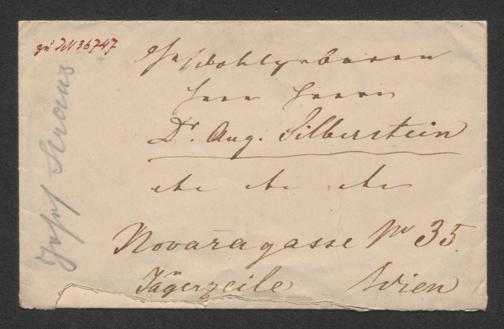 zu IN 36747
Josef Straus
Sr Wohlgeboren
Herrn Herrn
Dr. Aug. Silberstein
etc etc etc
Novaragasse No 35.
Jägerzeile Wien